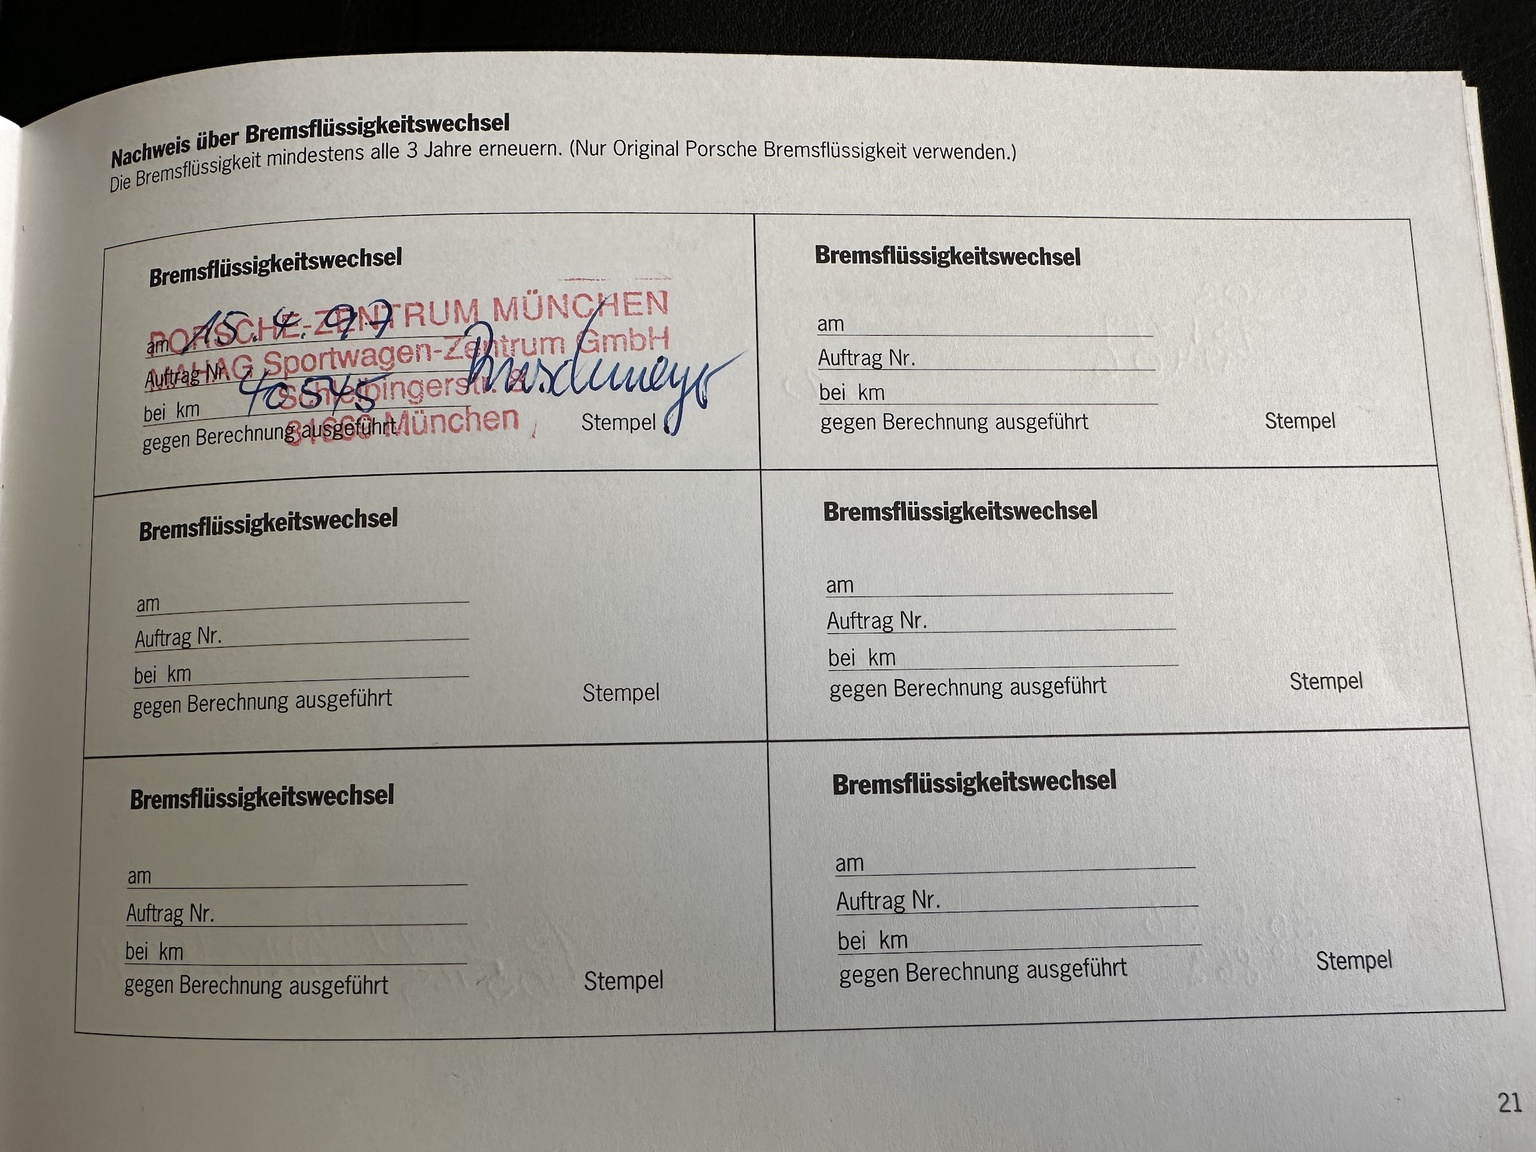 Nachweis über Bremsflüssigkeitswechsel
Die Bremsflüssigkeit mindestens alle 3 Jahre erneuern. (Nur Original Porsche Bremsflüssigkeit verwenden.)
Bremsflüssigkeitswechsel
PORSCHE-ZENTRUM MÜNCHEN
am 15.4.97
MAHAG Sportwagen-Zentrum GmbH
Auftrag Nr.
bei km 40545
gegen Berechnung ausgeführt
München
Stempel
Bremsflüssigkeitswechsel
am
Auftrag Nr.
bei km
gegen Berechnung ausgeführt
Stempel
Bremsflüssigkeitswechsel
am
Auftrag Nr.
bei km
gegen Berechnung ausgeführt
Stempel
Bremsflüssigkeitswechsel
am
Auftrag Nr.
bei km
gegen Berechnung ausgeführt
Stempel
Bremsflüssigkeitswechsel
am
Auftrag Nr.
bei km
gegen Berechnung ausgeführt
Stempel
Bremsflüssigkeitswechsel
am
Auftrag Nr.
bei km
gegen Berechnung ausgeführt
Stempel
21